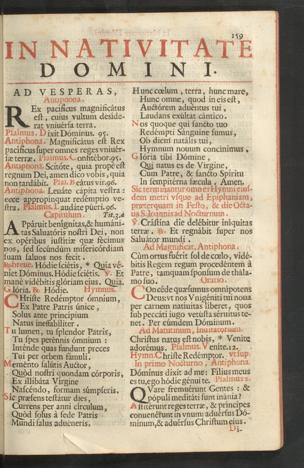 159
IN NATIVITATE
DOMINI.
AD VESPERAS,
Antiphona.
Rex pacificus magnificátus
est, cuius vultum deside-
rat vniuérsa terra.
Psalmus. Dixit Dóminus. 95.
Antiphona. Magnificátus est Rex
pacíficus super omnes reges vniuér-
sæ terræ. Psalmus. Confitébor.
Antiphona. Scitóte, quia prope est
regnum Dei, amen dico vobis, quia
non tardábit. Psal. Beátus vir.
Antiphona. Leuáte cápita vestra:
ecce appropínquat redémptio ve-
stra. Psalmus. Laudáte púeri.
Capitulum. Tit.3.
Appáruit benígnitas, & humáni-
tas Saluatóris nostri Dei, non
ex opéribus iustítiæ quæ fécimus
nos, sed secúndùm misericórdiam
suam saluos nos fecit.
Hódie sciétis, * Quia vé-
niet Dóminus. Hódie sciétis. V. Et
mane vidébitis glóriam eius. Quia.
Glória. R. Hódie. Hymnus.
Christe Redémptor ómnium,
Ex Patre Patris vnice,
Solus ante princípium
Natus ineffabíliter.
Tu lumen, tu splendor Patris,
Tu spes perénnis ómnium:
Inténde quas fundunt preces
Tui per orbem fámuli.
Meménto salútis Auctor,
Quòd nostri quondam córporis,
Ex illibáta Vírgine
Nascéndo, formam súmpseris.
Sic præsens testátur dies,
Currens per anni círculum,
Quòd solus à sede Patris
Mundi salus aduéneris.
Hunc cœlum, terra, hunc mare,
Hunc omne, quod in eis est,
Auctórem aduéntus tui,
Laudans exúltat cántico.
Nos quoque qui sancto tuo
Redémpti Sánguine sumus,
Ob diem natális tui,
Hymnum nouum concínimus.
Glória tibi Dómine,
Qui natus es de Vírgine,
Cum Patre, & sancto Spíritu
In sempitérna sæcula. Amen.
Sic terminantur omnes Hymni eius-
dem metri vsque ad Epiphaniam,
præterquam in Festo, & die Octa-
ua S. Ioannis ad Nocturnum.
V. Crástina die delébitur iníquitas
terræ. R. Et regnábit super nos
Saluátor mundi.
Ad Magnificat, Antiphona.
Cùm ortus fúerit sol de cœlo, vidé-
bitis Regem regum procedéntem à
Patre, tamquam sponsum de thála-
mo suo. Oratio.
Concéde quǽsumus omnípotens
Deus: vt nos Vnigéniti tui noua
per carnem natíuitas líberet, quos
sub peccáti iugo vetústa séruitus te-
net. Per eúmdem Dóminum.
Ad Matutinum, Inuitatorium.
Christus natus est nobis, * Veníte
adorémus. Psalmus. Veníte.
Hymn. Christe Redémptor. vt sup.
In primo Nocturno, Antiphona.
Dóminus dixit ad me: Fílius meus
es tu, ego hódie génui te. Psalmus 2.
Quare fremuérunt Gentes: &
pópuli meditáti sunt inánia?
Astitérunt reges terræ, & príncipes
conuenérunt in vnum: aduérsus Dó-
minum, & aduérsus Christum eius.